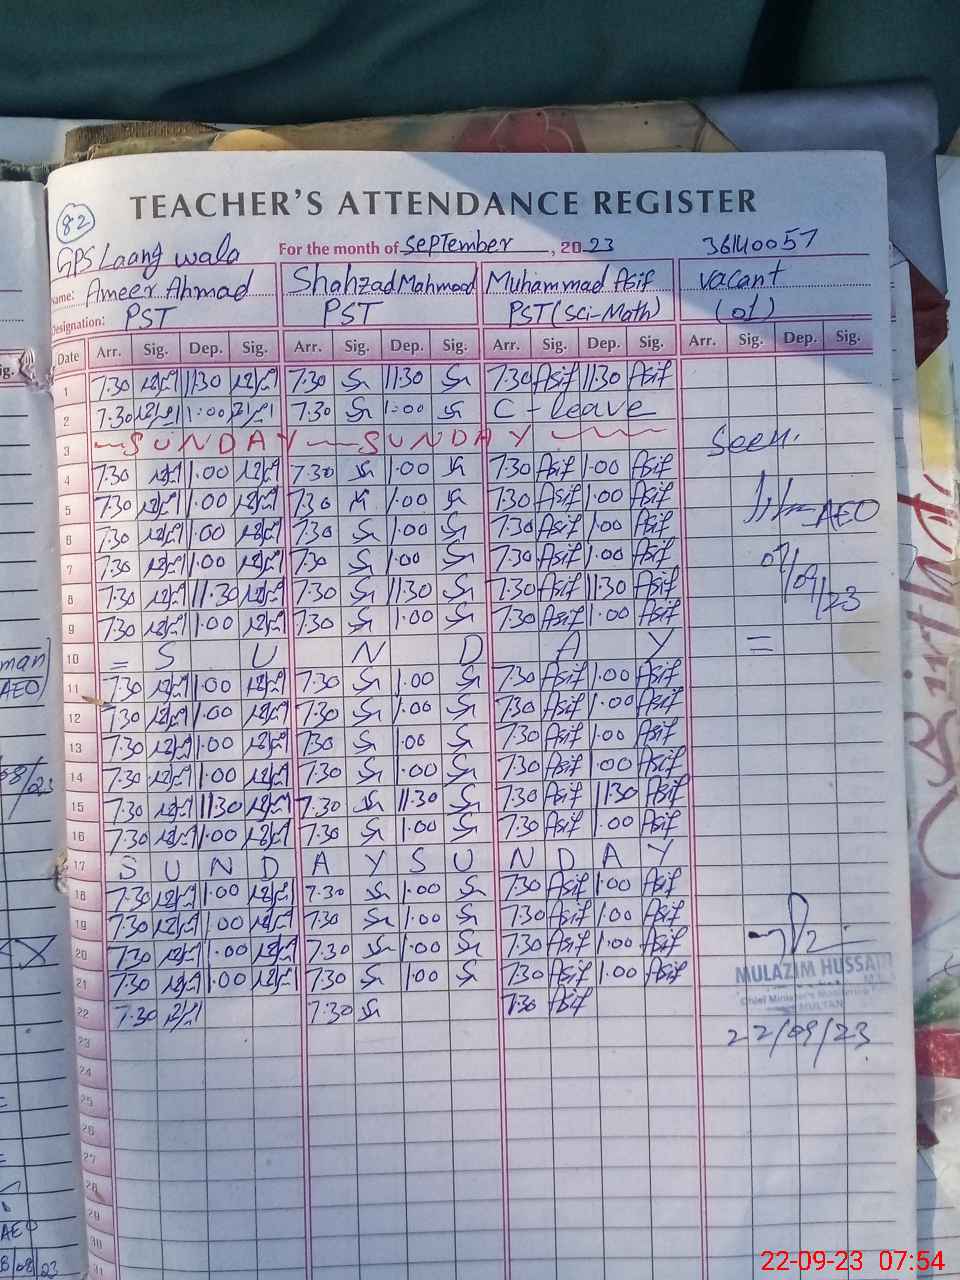 82
TEACHER'S ATTENDANCE REGISTER
GPS Laang wala For the month of September, 2023 36140057
Name: Ameer Ahmad Shahzad Mahmood Muhammad Asif Vacant
Designation: PST PST PST (Sci-Math) (01)
Date Arr. Sig. Dep. Sig. Arr. Sig. Dep. Sig. Arr. Sig. Dep. Sig. Arr. Sig. Dep. Sig.
1 7.30 11.30 7.30 11.30 7.30 Asif 11.30 Asif
2 7.30 1.00 7.30 1.00 C-leave
3 SUNDAY SUNDAY Seen.
4 7.30 1.00 7.30 1.00 7.30 Asif 1.00 Asif
5 7.30 1.00 7.30 1.00 7.30 Asif 1.00 Asif AEO
6 7.30 1.00 7.30 1.00 7.30 Asif 1.00 Asif
7 7.30 1.00 7.30 1.00 7.30 Asif 1.00 Asif
8 7.30 11.30 7.30 11.30 7.30 Asif 11.30 Asif 07/09/23
9 7.30 1.00 7.30 1.00 7.30 Asif 1.00 Asif
10 = S U N D A Y =
11 7.30 1.00 7.30 1.00 7.30 Asif 1.00 Asif
12 7.30 1.00 7.30 1.00 7.30 Asif 1.00 Asif
13 7.30 1.00 730 1.00 7.30 Asif 1.00 Asif
14 7.30 1.00 7.30 1.00 7.30 Asif 1.00 Asif
15 7.30 11.30 7.30 11.30 7.30 Asif 11.30 Asif
16 7.30 1.00 7.30 1.00 7.30 Asif 1.00 Asif
17 S U N D A Y S U N D A Y
18 7.30 1.00 7.30 1.00 7.30 Asif 1.00 Asif
19 7.30 1.00 7.30 1.00 7.30 Asif 1.00 Asif
20 7.30 1.00 7.30 1.00 7.30 Asif 1.00 Asif
21 7.30 1.00 7.30 1.00 7.30 Asif 1.00 Asif
MULAZIM HUSSAIN
Chief Minister's Monitoring
MULTAN
22 7.30 7.30 7.30 Asif
22/09/23
23
24
25
26
27
28
29
30
31
22-09-23 07:54